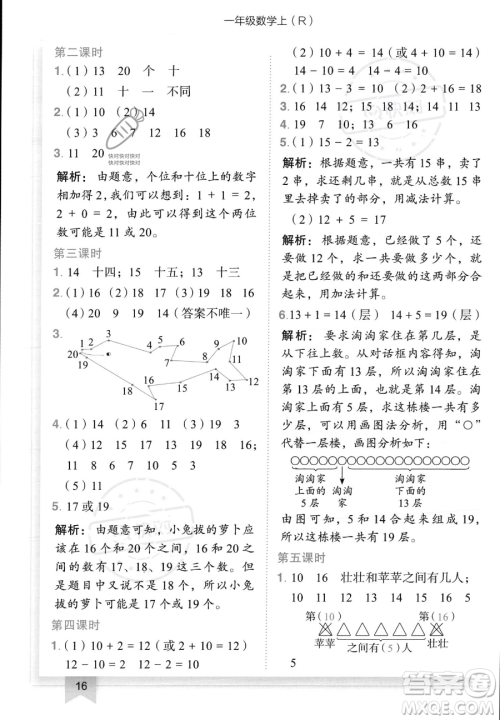 一年级数学上（R）
第二课时
1.（1）13　20　个　十
（2）11　十　一　不同
2.（1）10　（2）14
（3）8　16　18
3. 11　20
快对快对快对
快对快对快对
解析：由题意，个位和十位上的数字
相加得 2，我们可以想到：1 + 1 = 2，
2 + 0 = 2，由此可以得到这个两位
数可能是 11 或 20。
第三课时
1. 14　十四；15　十五；13　十三
2.（1）16　（2）13　15　17　18
（3）19　18　14（答案不唯一）
3.
20 19 18 17 16 15 14 13 12 11 10 9 8 7 6 5 4 3 2 1
4.（1）18　（2）17　19
（3）19　12　17　16　（4）13
（5）11
5. 17 或 19
解析：由题意可知，小兔拔的萝卜应
该在 16 和 20 之间。16 和 20 之间
的数有 17、18、19 这三个数，但是
题目中又说不是 18 个，所以小兔
拔的萝卜可能是 17 个或 19 个。
第四课时
1.（1）10 + 2 = 12（或 2 + 10 = 12）
12 - 10 = 2　12 - 2 = 10
16
（2）10 + 4 = 14（或 4 + 10 = 14）
14 - 10 = 4　14 - 4 = 10
2.（1）13 - 3 = 10　（2）12 - 2 = 10
3. 16　14　12　10　18
4. 19　10　15 - 5 = 10
解析：根据题意，一共有 15 串，掉
了 5 串，求还剩多少串，就是从 15 串
里面去掉卖了的部分，用减法计算。
5. 12 + 5 = 17
解析：根据题意，已经做了 5 个，还
要做 12 个，求一共要做多少个，就
是把已经做的和还要做的这两部分
合起来，用加法计算。
6. 13 + 1 = 14（层）　14 + 5 = 19（层）
解析：要求淘淘家住在第几层，从
对话框内容得知，淘淘家住在第 13
层的上面，所以淘淘家住在第 14
层；求这栋楼一共有几层，已知淘淘
家上面有 5 层，所以这栋楼一共有
19 层。可以用画图法分析，用“○”
代替一层楼，画图分析如下：
○○○○○○○○○○○○○○○○○○○
淘淘家上面的5层
淘淘家
淘淘家下面的13层
由图可知，淘淘家住在第 14 层，这
栋楼一共有 19 层。
第五课时
1. 10　16　壮壮和苹苹之间有几人；
第（10）　第（16）
△△△△△△△
苹苹　之间有（5）人　壮壮
5